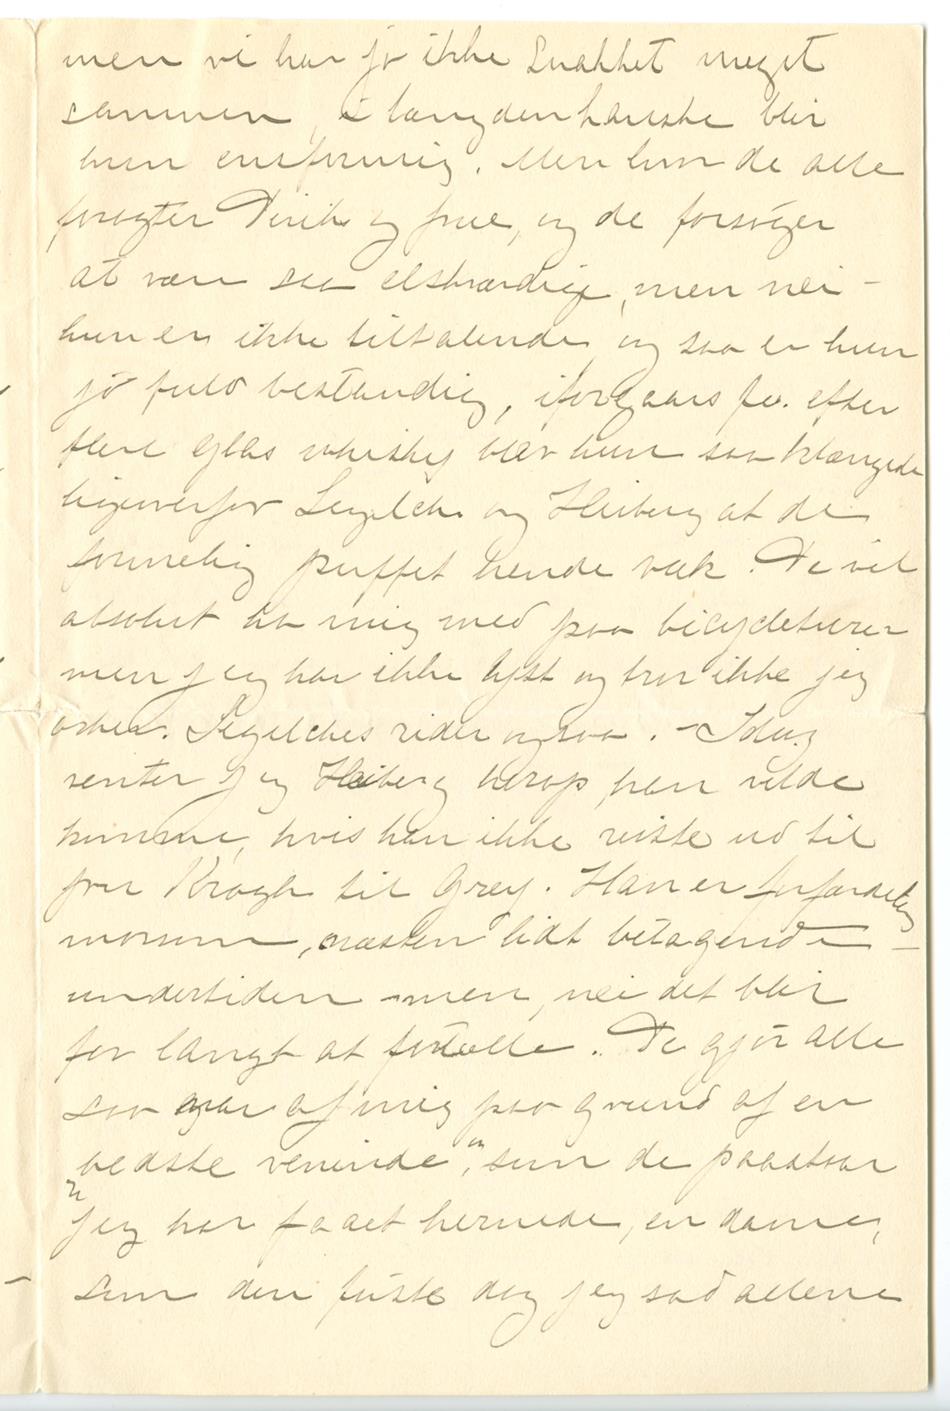 men vi har jo ikke snakket meget
sammen, i længden kanske blir
hun ensformig. Men hvor de alle
foragter Dirik og frue, og de forsøger
at være saa elskværdige, men nei –
hun er ikke tiltalende og saa er hun
jo fuld bestandig, iforgaars f.e. efter
flere glas whisky blev hun saa klængede
ligeoverfor Segelcke og Heiberg at de
formelig puffet hende væk. De vil
absolut ha mig med paa bicycleturer
men jeg har ikke lyst og tror ikke jeg
orker. Segelckes rider ogsaa. – Idag
venter jeg Heiberg herop, han vilde
komme, hvis han ikke reiste ud til
fru Krogh til Grez. Han er forfærdelig
morsom, næsten lidt betagende –
undertiden – men, nei det blir
for langt at fortælle. De gjør alle
saa nar af mig paa grund af en
„bedste veninde", som de paastaar
jeg har faaet hernede, en dame,
som den første dag jeg sad allene